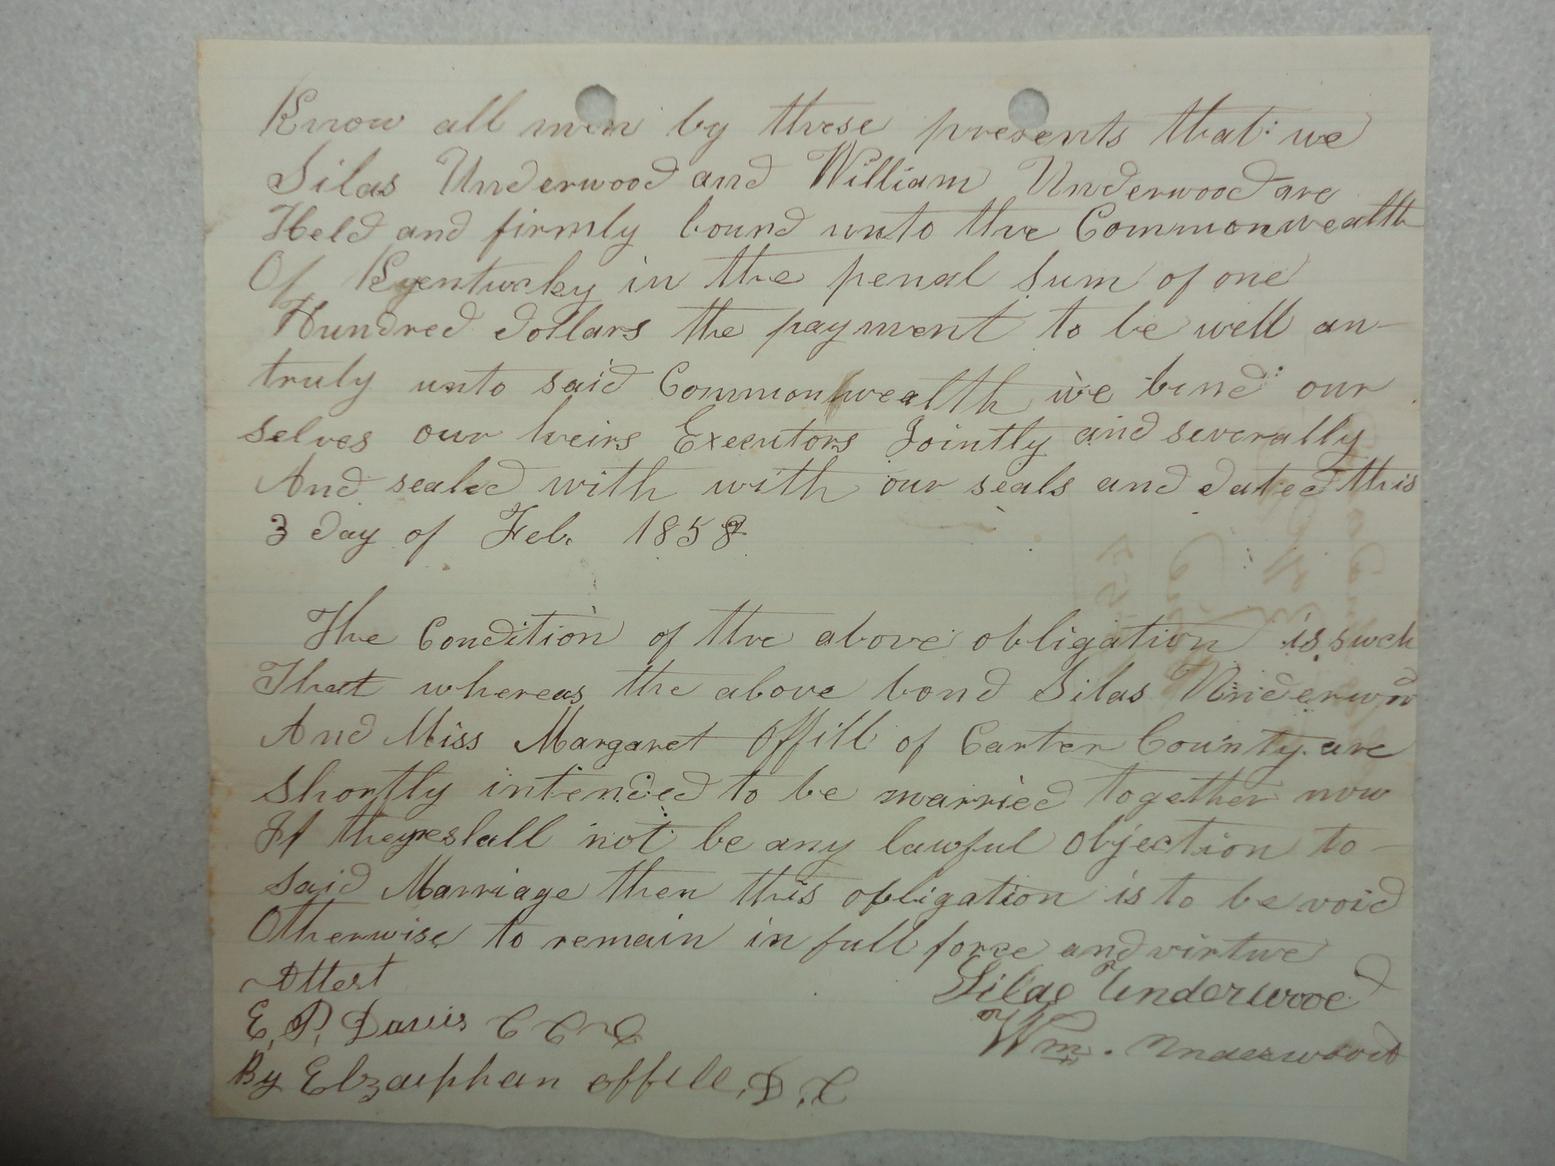 Know all men by these presents that we
Silas Underwood and William Underwood are
Held and firmly bound unto the Commonwealth
Of Kyentucky in the penal sum of one
Hundred dollars the payment to be well an-
truly unto said Commonwealth we bind our
selves our heirs Executors Jointly and severally
And sealed with with our seals and dated this
3 day of Feb. 1858
The Condition of the above obligation is such
That whereas the above bond Silas Underwoo
And Miss Margaret Offill of Carter County are
Shortly intended to be married together now
If they shall not be any lawful Objection to
Said Marriage then this obligation is to be void
Otherwise to remain in full force and virtue
Attest
Silas Underwood
E. P. Davis C C C
Wm. Underwood
By Elzaphan Offill, D. C